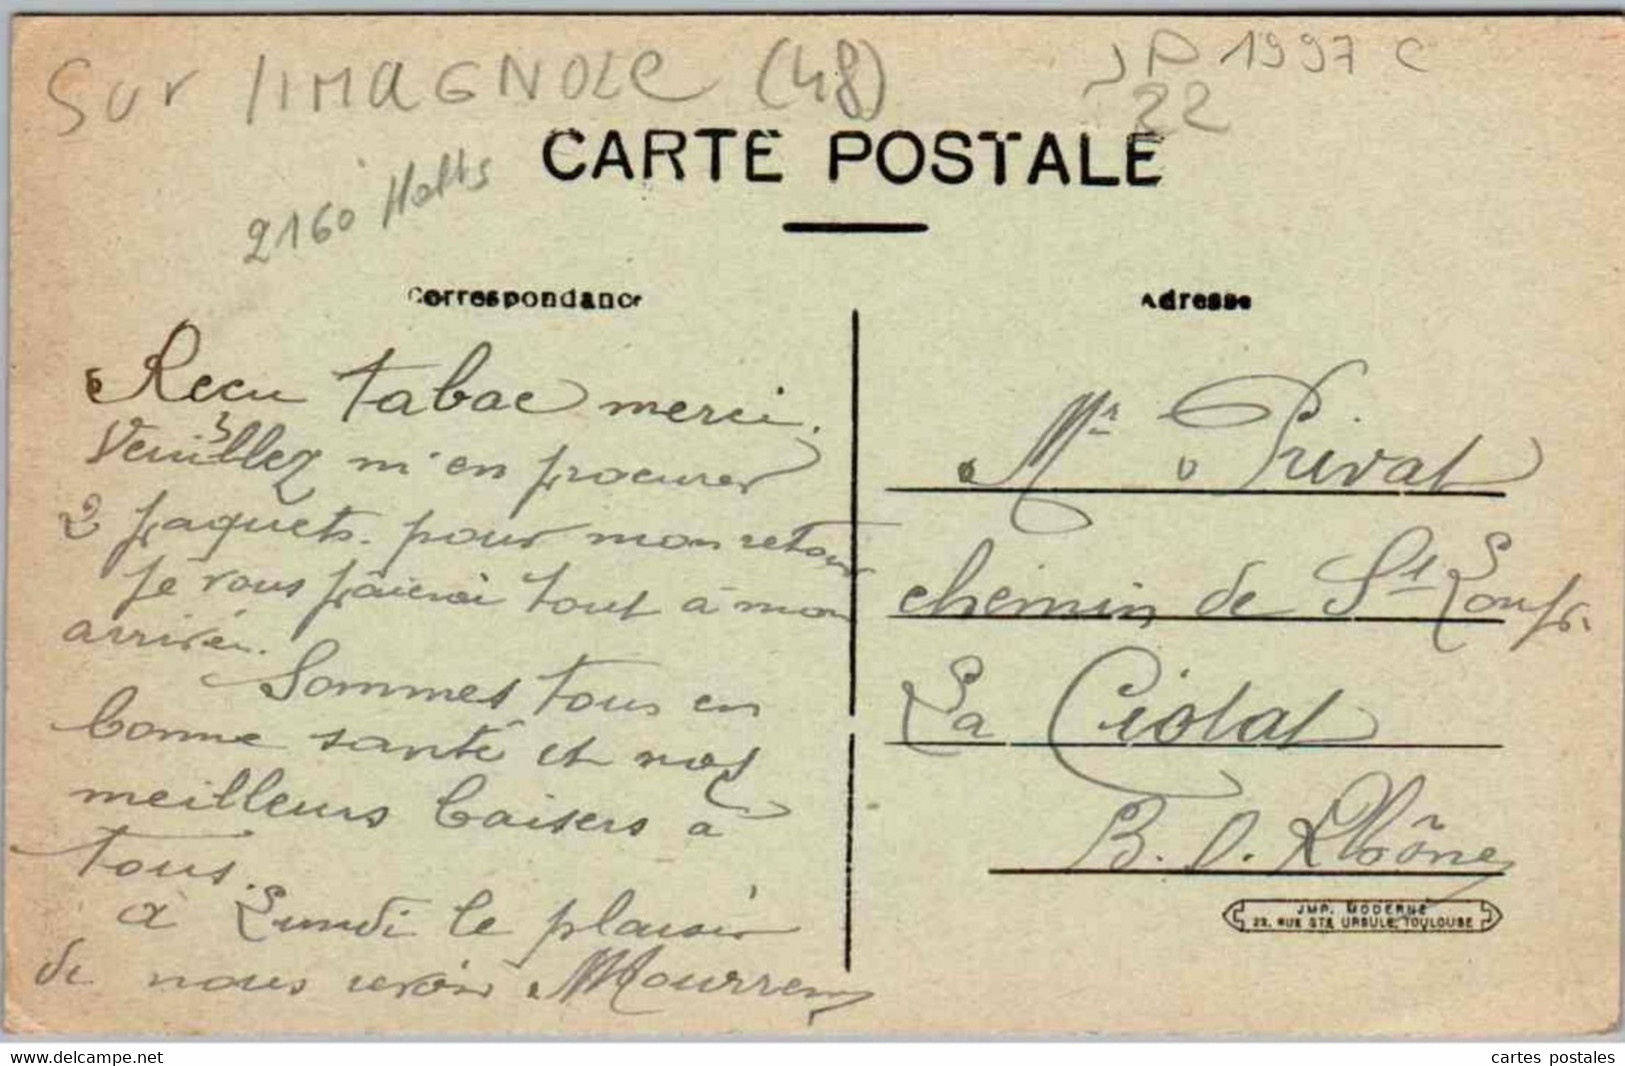 Sur limagnole (48)
JP 1997 C
22
2160 Hab^ts
CARTE POSTALE
Correspondance
Adresse
Recu tabac merci.
Veuillez m'en procurer
2 paquets. pour mon retour
je vous paierai tout à mon
arrivée.
Sommes tous en
bonne santé et nos
meilleurs baisers à
tous.
à Lundi le plaisir
de nous revoir Mourren
Mr Privat
chemin de St Loup.
La Ciotat
B. d. Rhône
IMP. MODERNE
22, RUE STE URSULE, TOULOUSE
www.delcampe.net
cartes postales